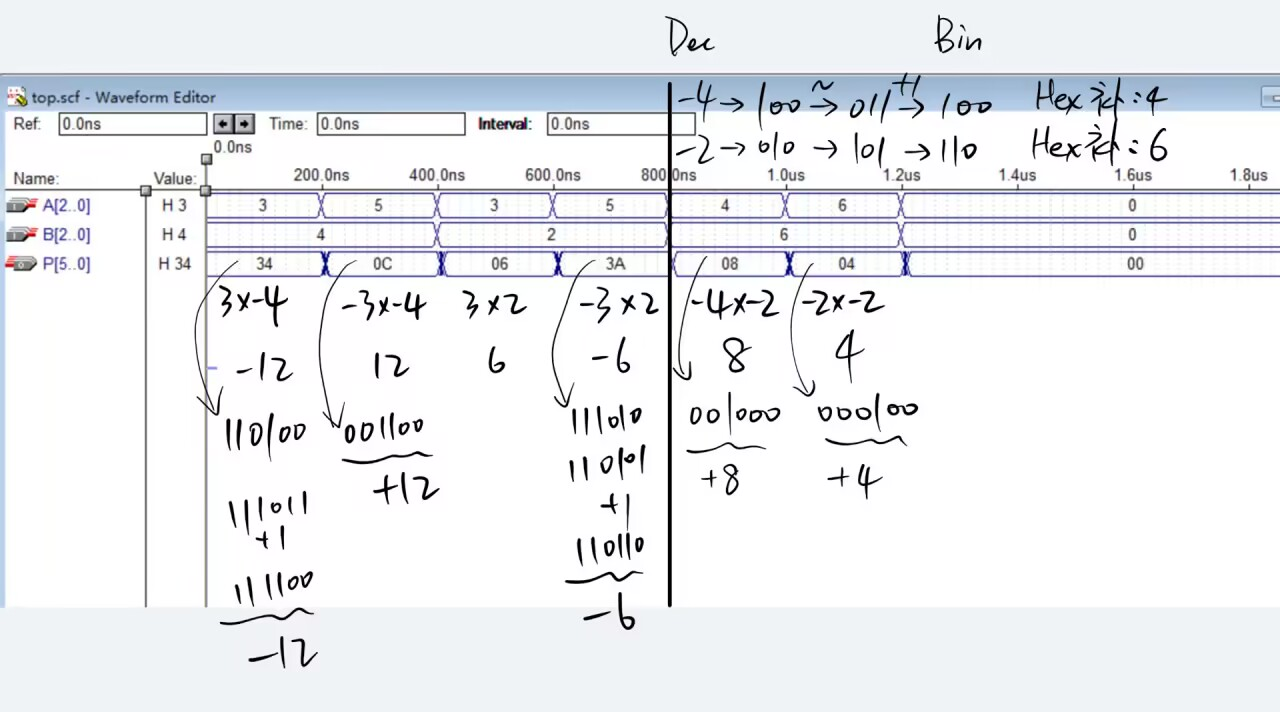 Dec Bin
top.scf - Waveform Editor
-4 → 100 ~→ 011 +1→ 100 Hex 补: 4
Ref: 0.0ns Time: 0.0ns Interval: 0.0ns
-2 → 010 → 101 → 110 Hex 补: 6
0.0ns
Name: Value: 200.0ns 400.0ns 600.0ns 800.0ns 1.0us 1.2us 1.4us 1.6us 1.8us
A[2..0] H 3 3 5 3 5 4 6 0
B[2..0] H 4 4 2 6 0
P[5..0] H 34 34 0C 06 3A 08 04 00
3x-4 -3x-4 3x2 -3x2 -4x-2 -2x-2
-12 12 6 -6 8 4
110100 001100 111010 001000 000100
110101
+12 +8 +4
111011 +1
+1 110110
111100 -6
-12